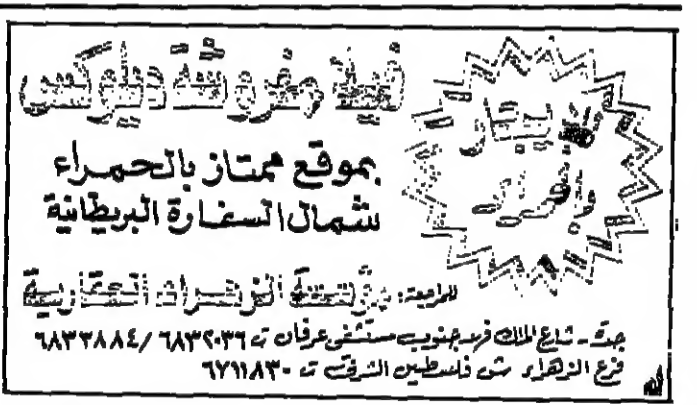 فيلا مفروشة ديلوكس
للإيجار
أو للبيع
بموقع ممتاز بالحمراء
شمال السفارة البريطانية
للمراجعة: مؤسسة الزهراء العقارية
جدة - شارع الملك فهد جنوب مستشفى عرفان ت ٦٨٣٢٠٣٦ / ٦٨٣٣٨٨٤
فرع الزهراء ش فلسطين الشرقى ت ٦٧١١٨٣٠